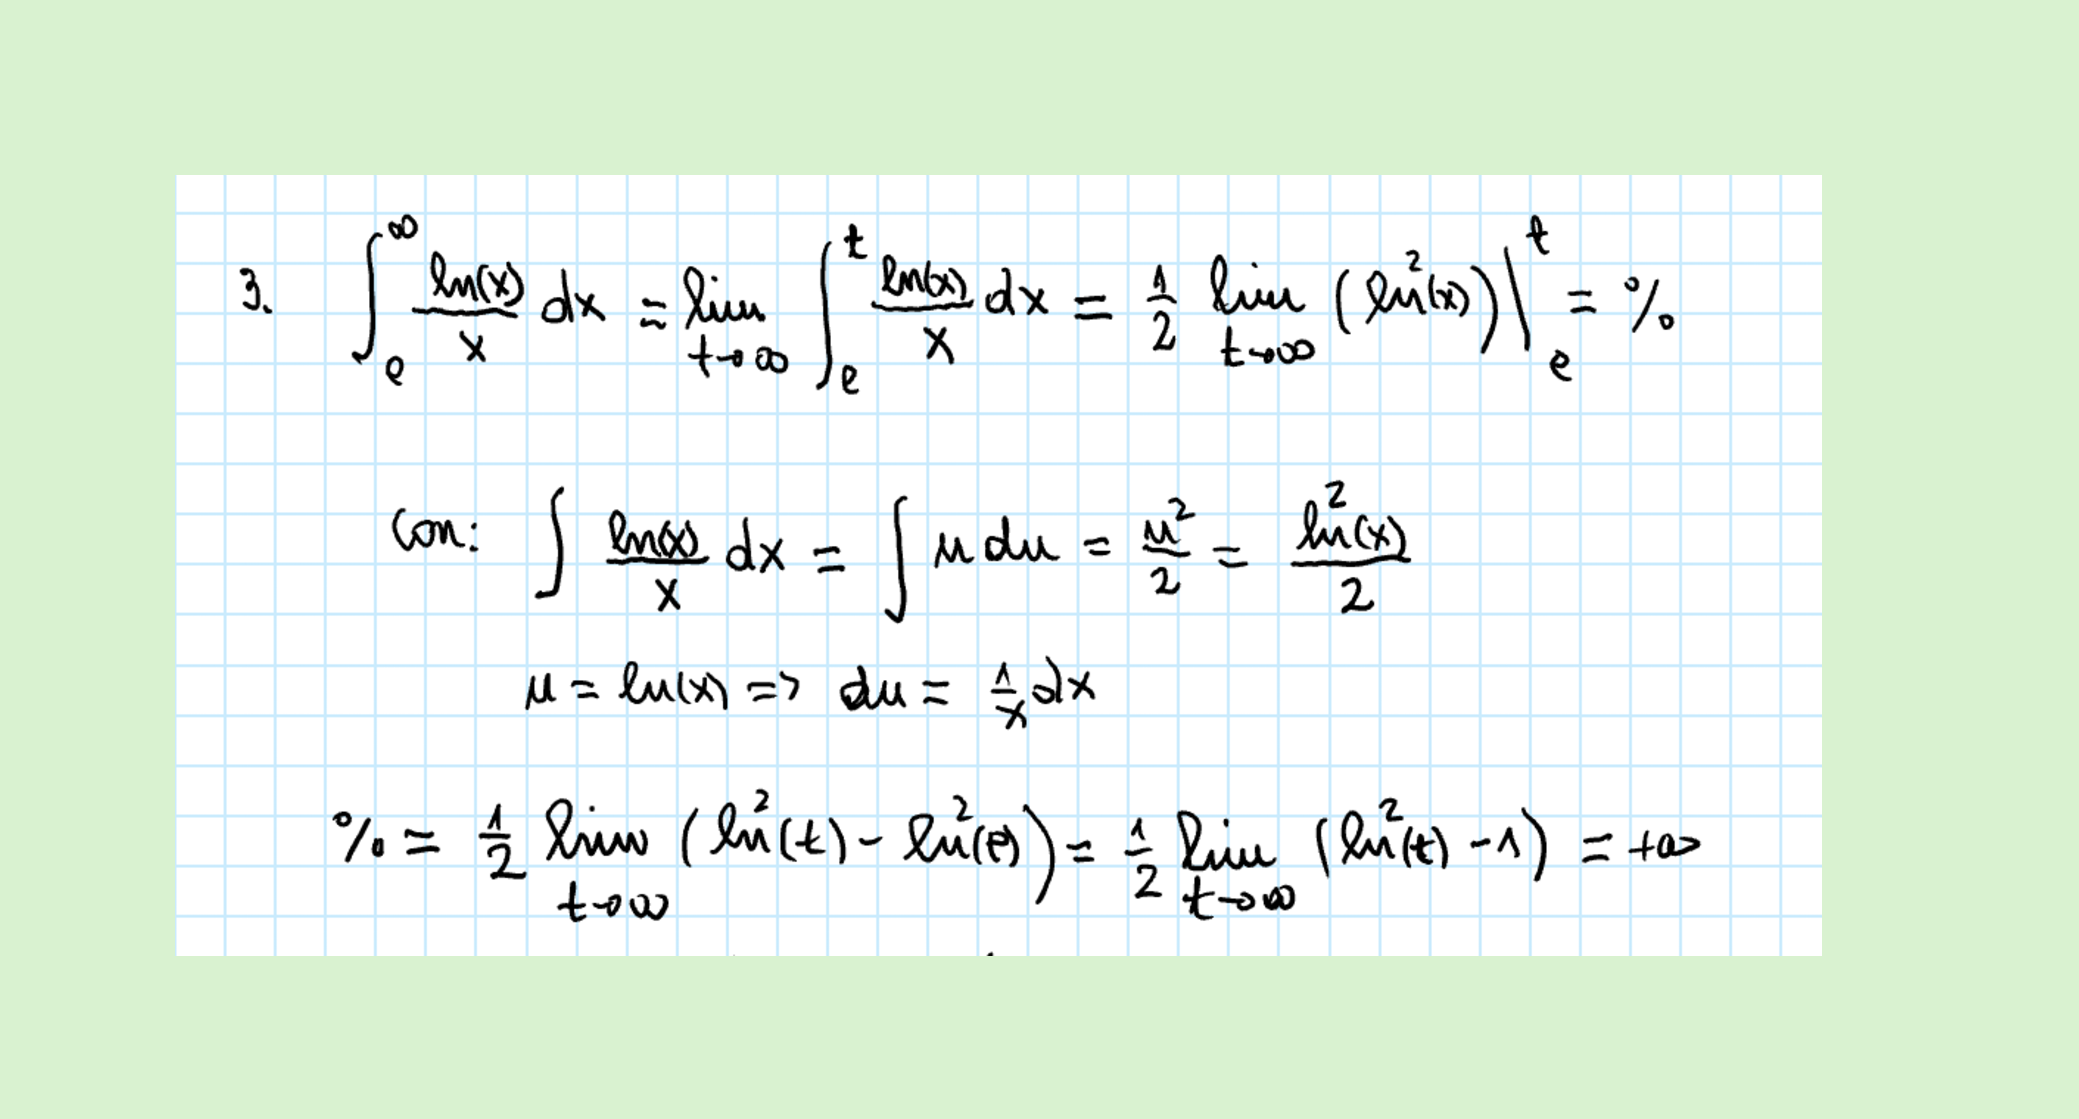 3. ∫_e^∞ ln(x)/x dx = lim_{t→∞} ∫_e^t ln(x)/x dx = 1/2 lim_{t→∞} (ln²(x))|_e^t = %
Con: ∫ ln(x)/x dx = ∫ u du = u²/2 = ln²(x)/2
u = ln(x) => du = 1/x dx
% = 1/2 lim_{t→∞} (ln²(t) - ln²(e)) = 1/2 lim_{t→∞} (ln²(t) - 1) = +∞